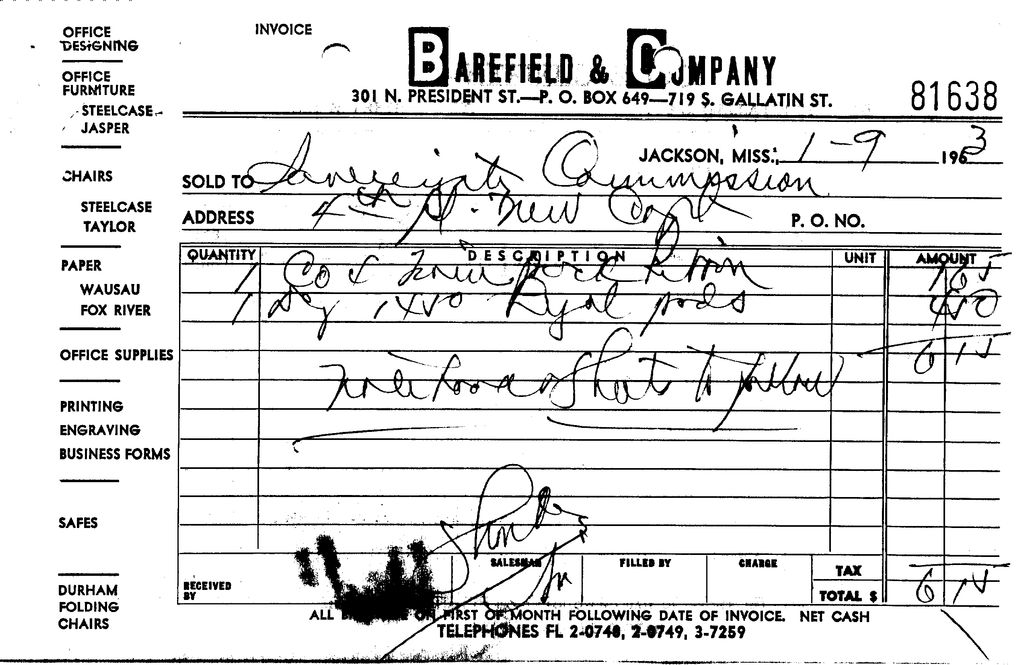 OFFICE
DESIGNING
OFFICE
FURNITURE
STEELCASE
JASPER
CHAIRS
STEELCASE
TAYLOR
PAPER
WAUSAU
FOX RIVER
OFFICE SUPPLIES
PRINTING
ENGRAVING
BUSINESS FORMS
SAFES
DURHAM
FOLDING
CHAIRS
INVOICE
BAREFIELD & COMPANY
301 N. PRESIDENT ST.—P. O. BOX 649—719 S. GALLATIN ST.
81638
JACKSON, MISS., 1-9 1963
SOLD TO Sovereignty Commission
ADDRESS 4th New P. O. NO.
QUANTITY DESCRIPTION UNIT AMOUNT
1 165
1 Royal pads 450
6 15
note book to follow
RECEIVED BY SALESMAN FILLED BY CHARGE TAX
TOTAL $ 6 15
ALL ON FIRST OF MONTH FOLLOWING DATE OF INVOICE. NET CASH
TELEPHONES FL 2-0748, 2-0749, 3-7259